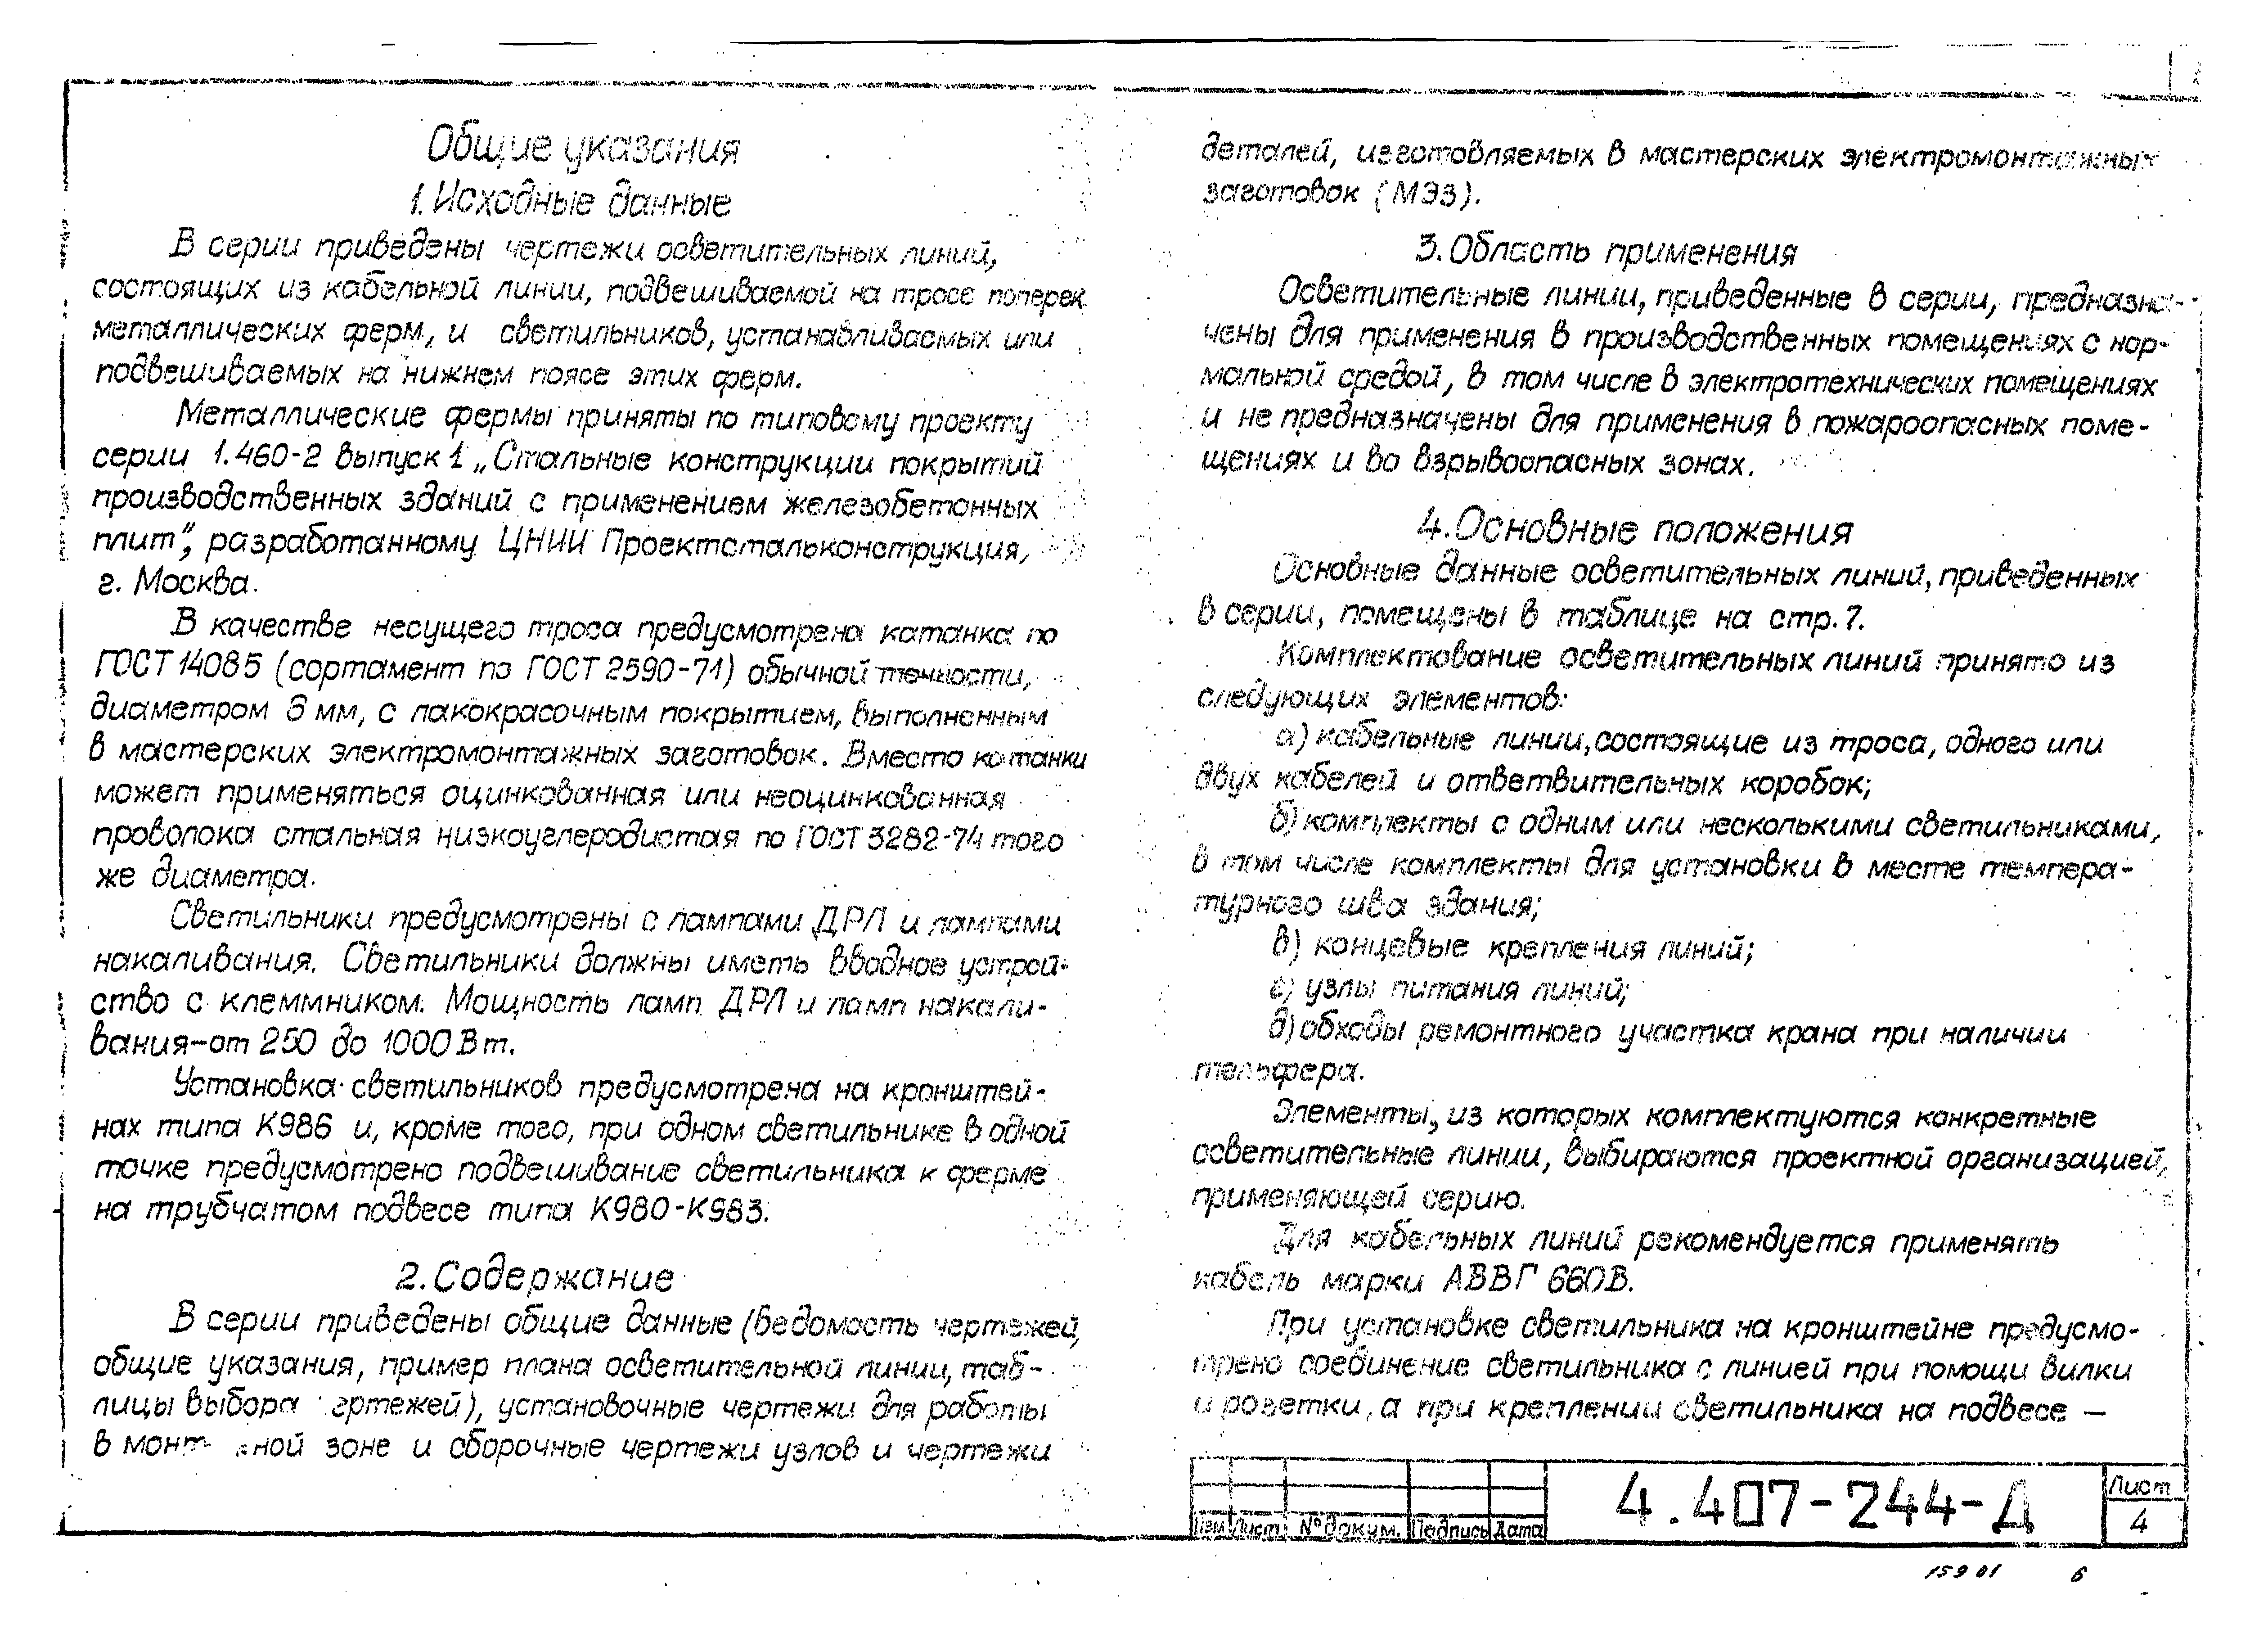 Общие указания
1. Исходные данные
В серии приведены чертежи осветительных линий,
состоящих из кабельной линии, подвешиваемой на тросе поперек
металлических ферм, и светильников, устанавливаемых или
подвешиваемых на нижнем поясе этих ферм.
Металлические фермы приняты по типовому проекту
серии 1.460-2 выпуск 1 „Стальные конструкции покрытий
производственных зданий с применением железобетонных
плит", разработанному ЦНИИ Проектстальконструкция,
г. Москва.
В качестве несущего троса предусмотрена катанка по
ГОСТ 14085 (сортамент по ГОСТ 2590-71) обычной точности,
диаметром 6 мм, с лакокрасочным покрытием, выполненным
в мастерских электромонтажных заготовок. Вместо катанки
может применяться оцинкованная или неоцинкованная
проволока стальная низкоуглеродистая по ГОСТ 3282-74 того
же диаметра.
Светильники предусмотрены с лампами ДРЛ и лампами
накаливания. Светильники должны иметь вводное устрой-
ство с клеммником. Мощность ламп ДРЛ и ламп накали-
вания-от 250 до 1000 Вт.
Установка светильников предусмотрена на кронштей-
нах типа К986 и, кроме того, при одном светильнике в одной
точке предусмотрено подвешивание светильника к ферме
на трубчатом подвесе типа К980-К983.
2. Содержание
В серии приведены общие данные (ведомость чертежей,
общие указания, пример плана осветительной линии, таб-
лицы выбора чертежей), установочные чертежи для работы
в монтажной зоне и сборочные чертежи узлов и чертежи
деталей, изготовляемых в мастерских электромонтажных
заготовок (МЭЗ).
3. Область применения
Осветительные линии, приведенные в серии, предназна-
чены для применения в производственных помещениях с нор-
мальной средой, в том числе в электротехнических помещениях
и не предназначены для применения в пожароопасных поме-
щениях и во взрывоопасных зонах.
4. Основные положения
Основные данные осветительных линий, приведенных
в серии, помещены в таблице на стр. 7.
Комплектование осветительных линий принято из
следующих элементов:
а) кабельные линии, состоящие из троса, одного или
двух кабелей и ответвительных коробок;
б) комплекты с одним или несколькими светильниками,
в том числе комплекты для установки в месте темпера-
турного шва здания;
в) концевые крепления линий;
г) узлы питания линий;
д) обходы ремонтного участка крана при наличии
тельфера.
Элементы, из которых комплектуются конкретные
осветительные линии, выбираются проектной организацией,
применяющей серию.
Для кабельных линий рекомендуется применять
кабель марки АВВГ 660В.
При установке светильника на кронштейне предусмо-
трено соединение светильника с линией при помощи вилки
и розетки, а при креплении светильника на подвесе —
Изм Лист № докум. Подпись Дата
4.407-244-Д
Лист
4
15901 6